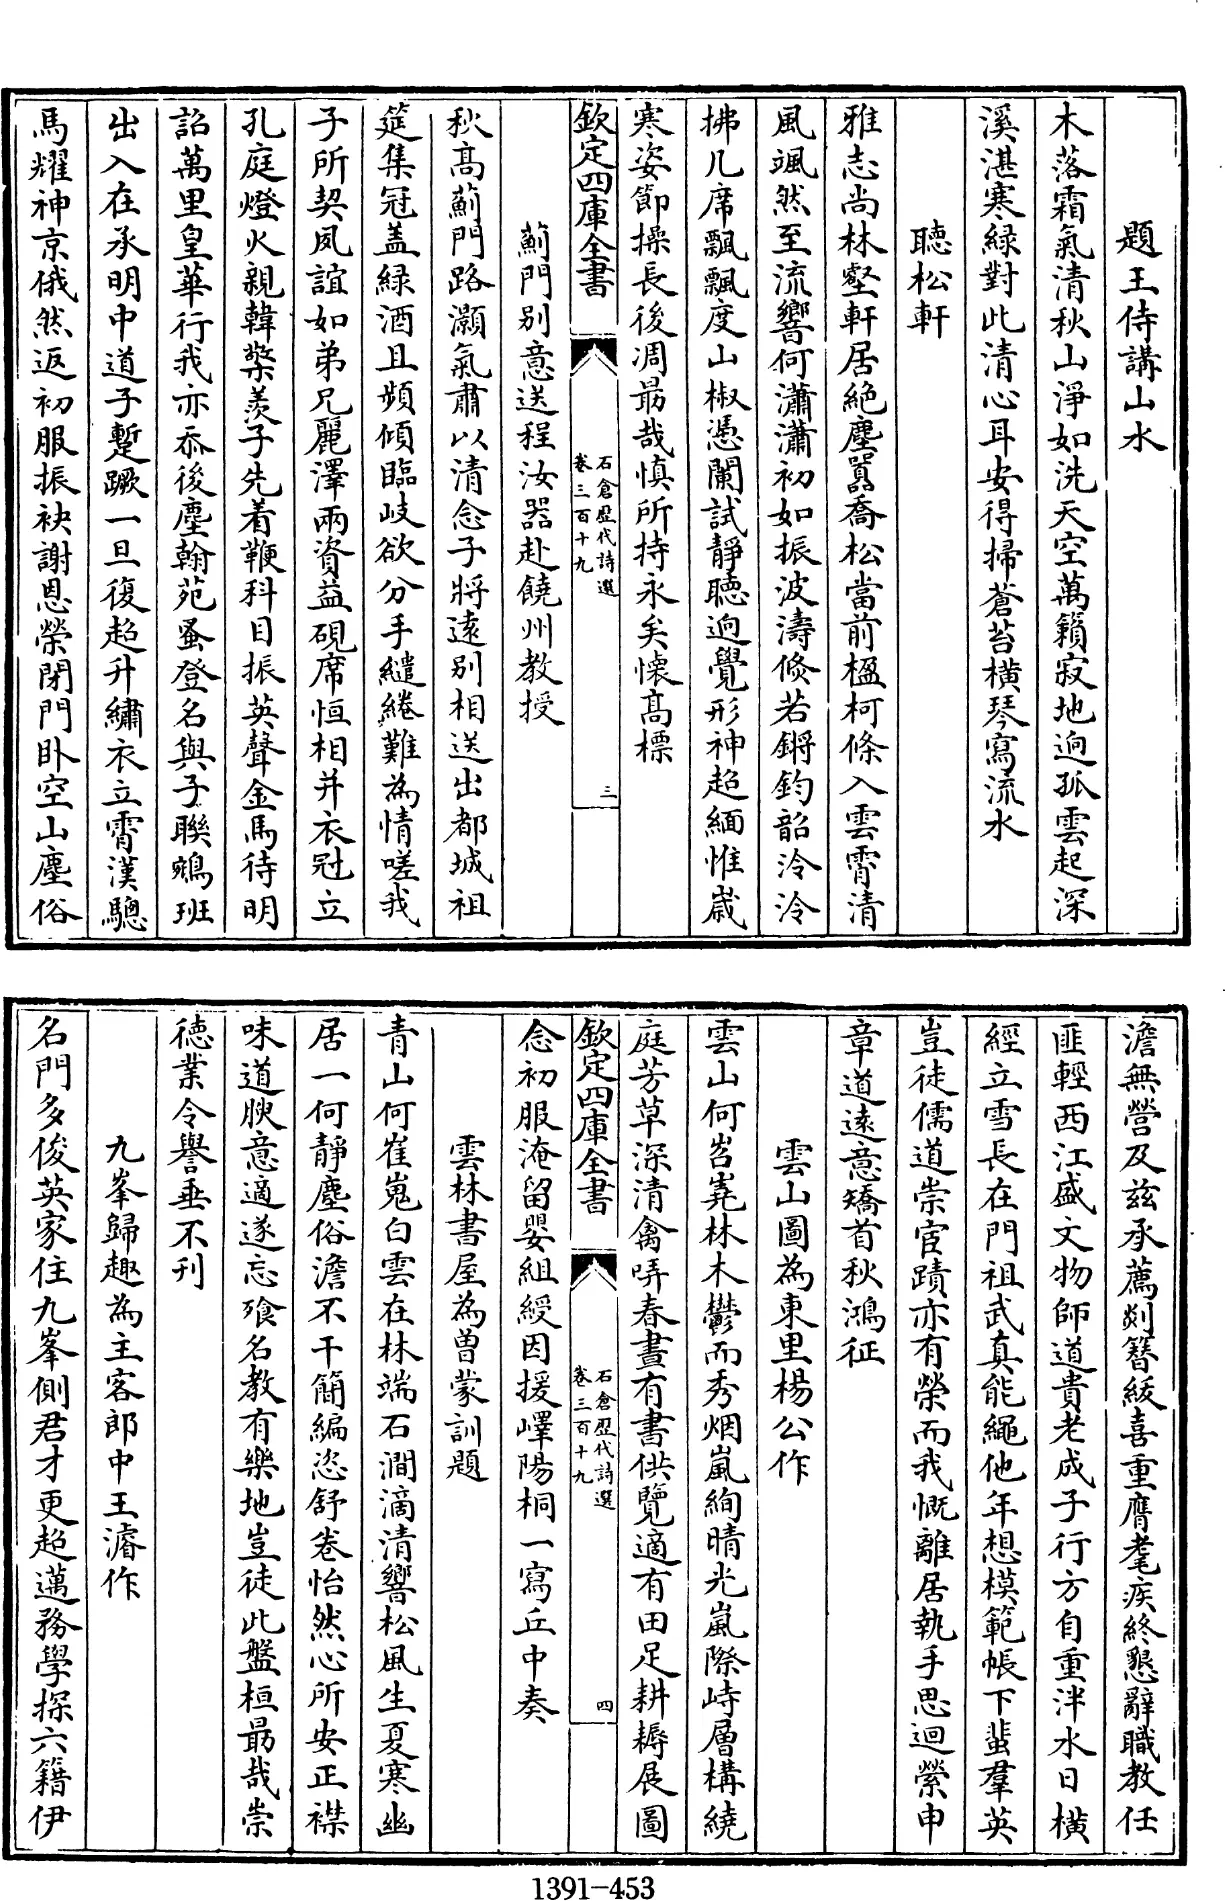 題王侍講山水
木落霜氣清秋山淨如洗天空萬籟寂地迥孤雲起深
溪湛寒綠對此清心耳安得掃蒼苔橫琴寫流水
聽松軒
雅志尚林壑軒居絶塵囂喬松當前楹柯條入雲霄清
風颯然至流響何瀟瀟初如振波濤倐若鏘鈞韶泠泠
拂几席飄飄度山椒憑闌試靜聽迥覺形神超緬惟歲
寒姿節操長後凋朂哉慎所持永矣懷高標
欽定四庫全書
石倉歷代詩選
卷三百十九
三
薊門别意送程汝器赴饒州教授
秋高薊門路灝氣肅以清念子將遠别相送出都城祖
筵集冠盖綠酒且頻傾臨岐欲分手繾綣難為情嗟我
子所契夙誼如弟兄麗澤兩資益硯席恒相并衣冠立
孔庭燈火親韓檠羨子先着鞭科目振英聲金馬待明
詔萬里皇華行我亦忝後塵翰苑蚤登名與子聯鵷班
出入在承明中道子蹔蹶一旦復超升繡衣立霄漢驄
馬耀神京俄然返初服振袂謝恩榮閉門卧空山塵俗
澹無營及兹承薦剡簪紱喜重膺耄疾終懇辭職教任
匪輕西江盛文物師道貴老成子行方自重泮水日橫
經立雪長在門祖武真能繩他年想模範帳下蜚羣英
豈徒儒道崇宦蹟亦有榮而我慨離居執手思迴縈申
章道遠意矯首秋鴻征
雲山圖為東里楊公作
雲山何岧嶤林木鬱而秀烟嵐絢晴光嵐際峙層構繞
庭芳草深清禽哢春晝有書供覽適有田足耕耨展圖
欽定四庫全書
石倉歷代詩選
卷三百十九
四
念初服淹留嬰組綬因援嶧陽桐一寫丘中奏
雲林書屋為曾蒙訓題
青山何崔嵬白雲在林端石澗滴清響松風生夏寒幽
居一何靜塵俗澹不干簡編恣舒卷怡然心所安正襟
味道腴意適遂忘飱名教有樂地豈徒此盤桓朂哉崇
德業令譽垂不刊
九峯歸趣為主客郎中王濬作
名門多俊英家住九峯側君才更超邁務學探六籍伊
1391-453